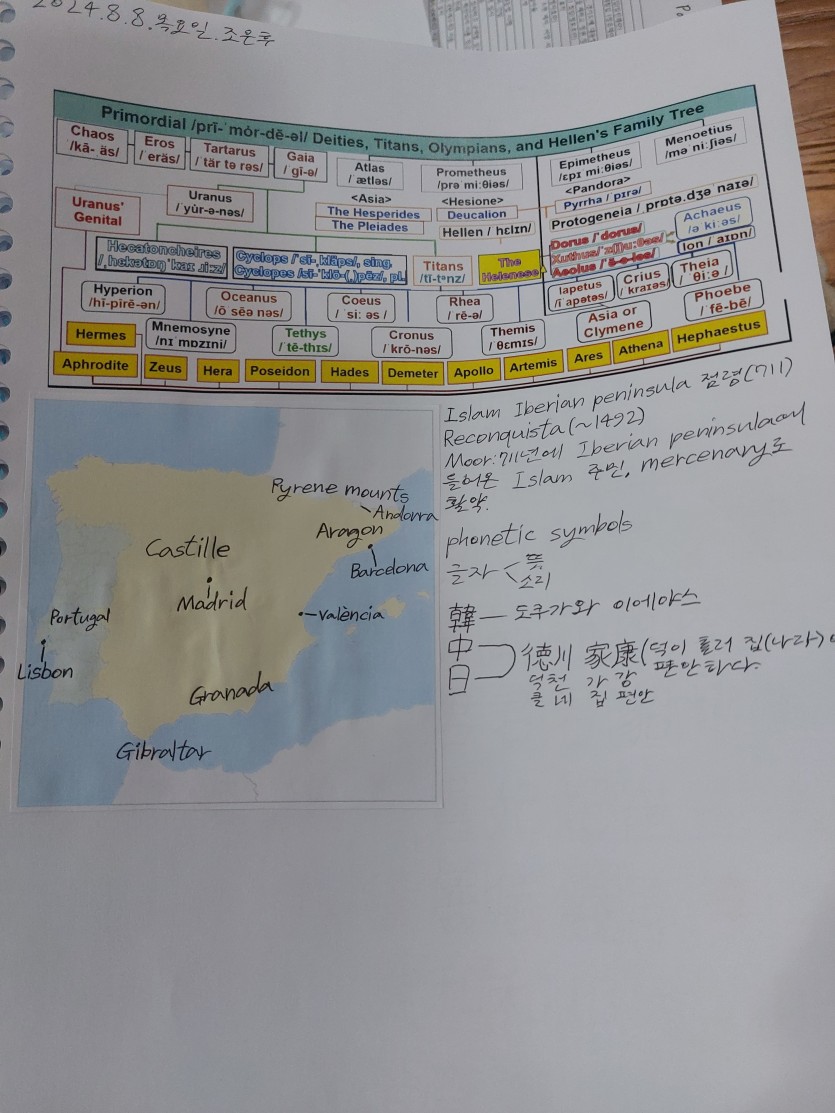 2024.8.8.목요일.조은후
Primordial /prī-ˈmȯr-dē-əl/ Deities, Titans, Olympians, and Hellen's Family Tree
Chaos
/kā- äs/
Eros
/ˈeräs/
Tartarus
/ˈtär tə rəs/
Gaia
/ˈgī-ə/
Atlas
/ˈætləs/
Prometheus
/prə miːθiəs/
Epimetheus
/ɛpɪ miːθiəs/
Menoetius
/mə niːʃiəs/
<Asia>
<Hesione>
<Pandora>
Uranus'
Genital
Uranus
/ˈyu̇r-ə-nəs/
The Hesperides
The Pleiades
Deucalion
Pyrrha / pɪrə/
Hellen / hɛlɪn/
Protogeneia / prɒtə.dʒə naɪə/
Achaeus
/ə kiːəs/
Hecatoncheires
/ˌhɛkətɒŋˈkaɪ ɹiːz/
Cyclops /ˈsī-ˌkläps/, sing.
Cyclopes /sī-ˈklō-(ˌ)pēz/, pl.
Titans
/tī-tᵊnz/
The
Helenese
Dorus /ˈdorus/
Xuthus/
Aeolus /
Ion / aɪɒn/
Hyperion
/hī-pirē-ən/
Oceanus
/ō sēə nəs/
Coeus
/ˈsiː əs /
Rhea
/ rē-ə/
Iapetus
/ī apətəs/
Crius
/ kraɪəs/
Theia
/ˈθiːə /
Mnemosyne
/nɪˈmɒzɪni/
Tethys
/ˈtē-thɪs/
Cronus
/ˈkrō-nəs/
Themis
/ˈθɛmɪs/
Asia or
Clymene
Phoebe
/ˈfē-bē/
Hermes
Aphrodite
Zeus
Hera
Poseidon
Hades
Demeter
Apollo
Artemis
Ares
Athena
Hephaestus
Islam Iberian peninsula 점령(711)
Reconquista(~1492)
Moor:711년에 Iberian peninsula에
들어온 Islam 주민. mercenary로
활약.
phonetic symbols
글자 < 뜻
소리
韓 — 도쿠가와 이에야스
中
日
徳川 家康(덕이 흘러 집(나라)이
편안하다.
덕천 가 강
클 내 집 편안
Pyrene mounts
Andorra
Aragon
Castille
Barcelona
Madrid
València
Portugal
Lisbon
Granada
Gibraltar